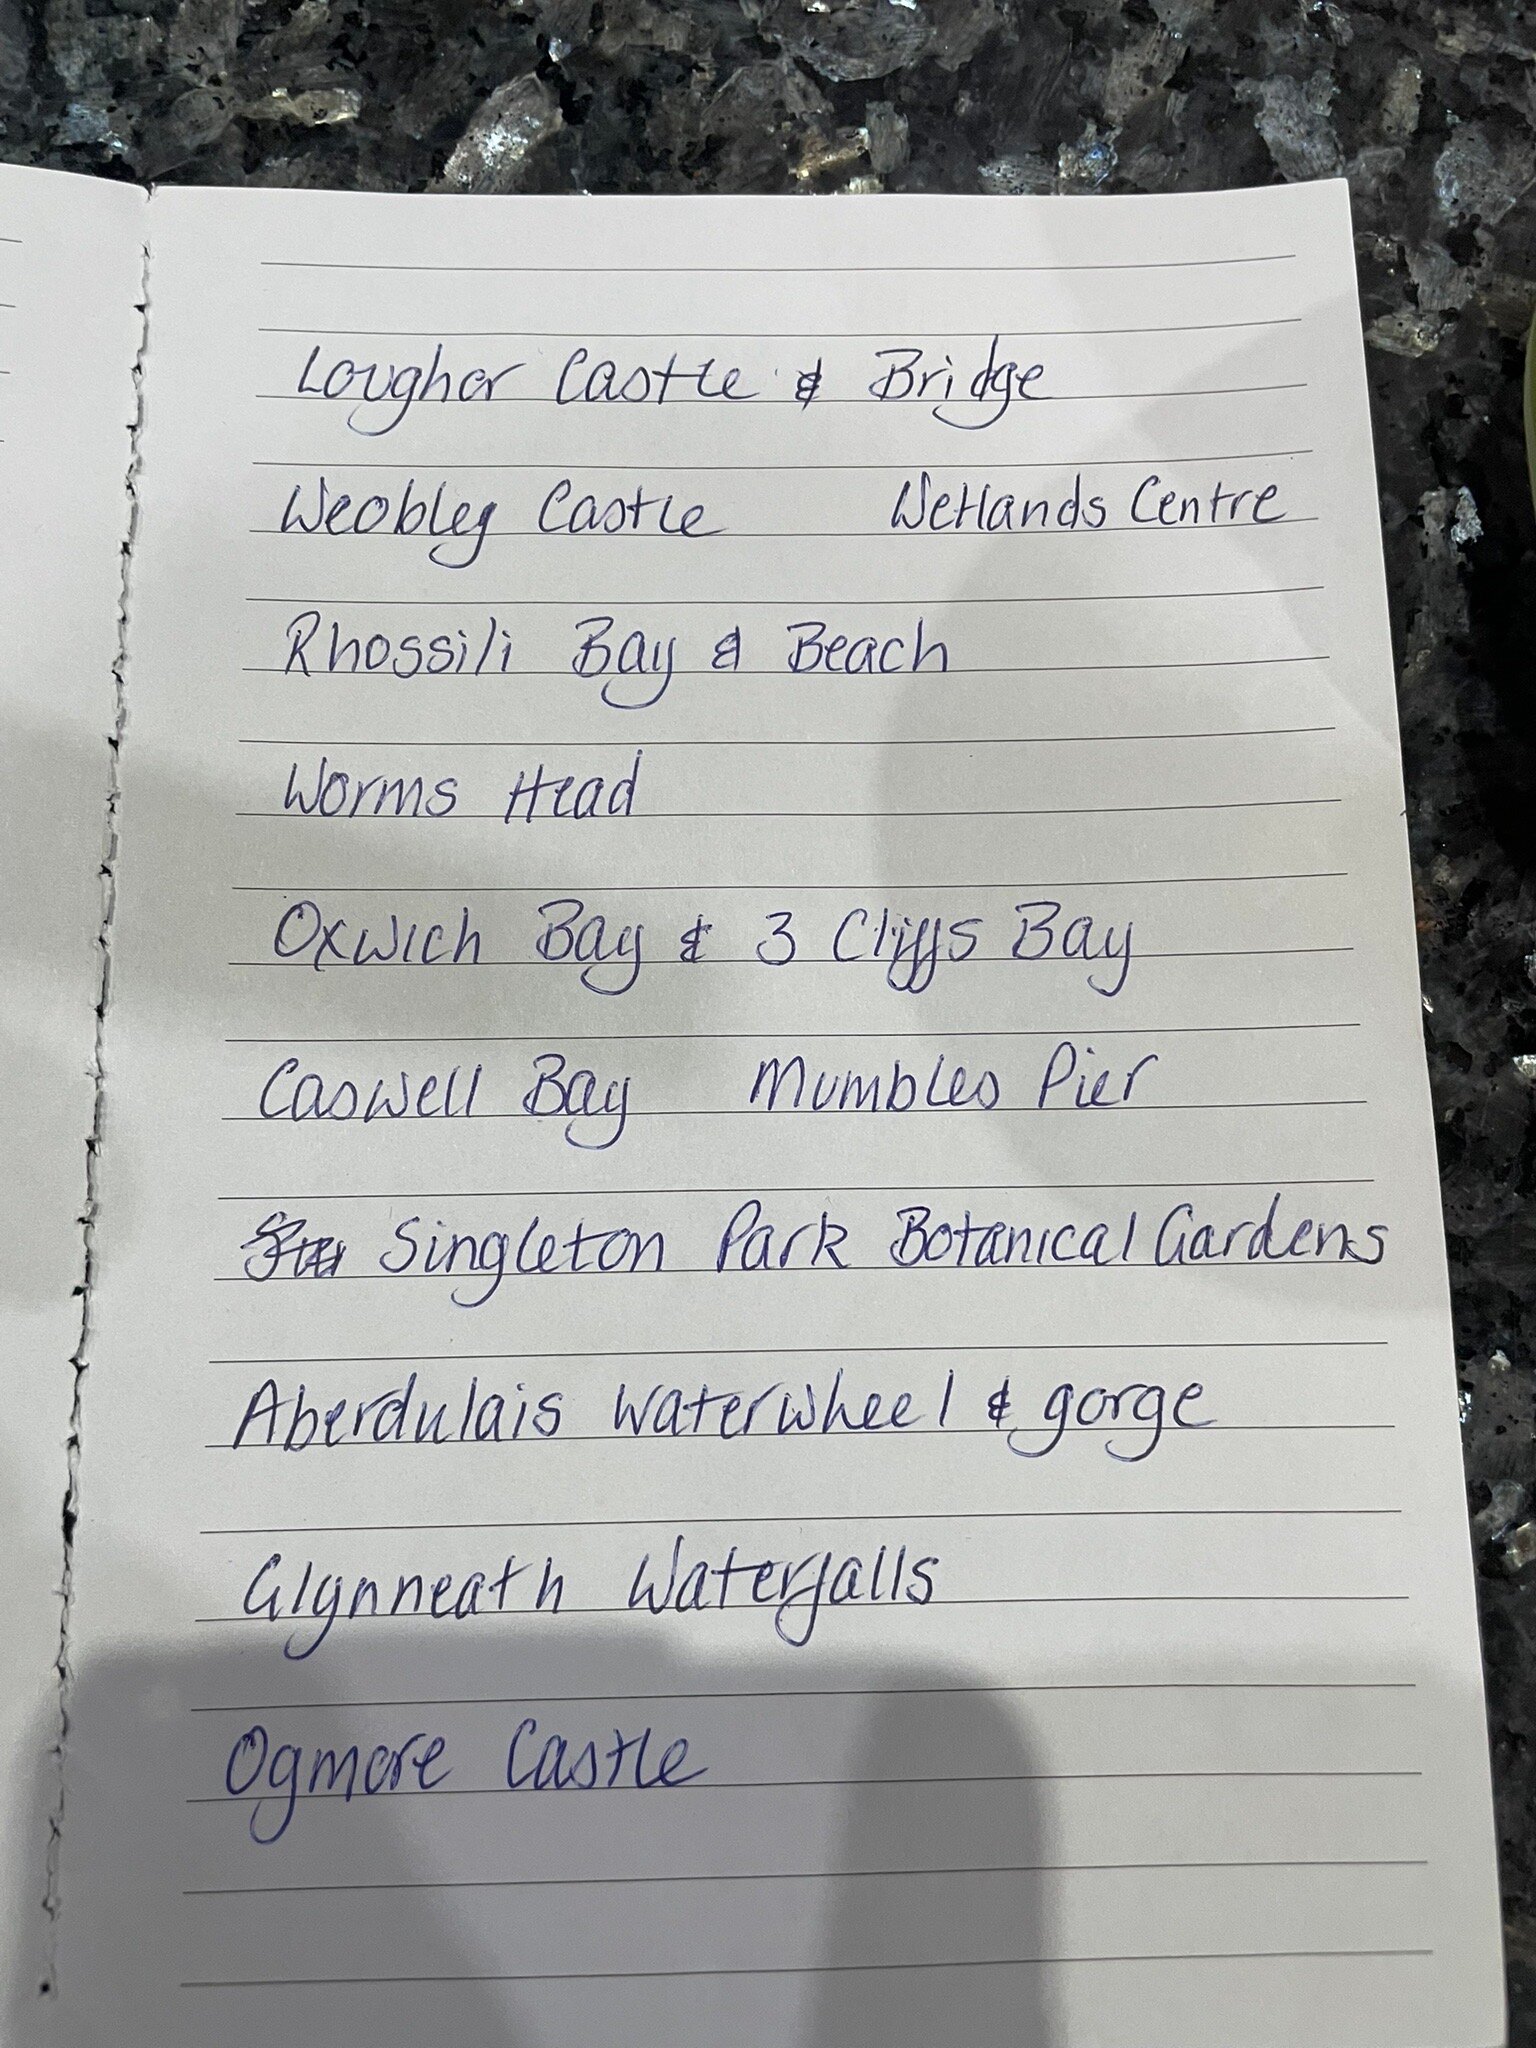 Loughor Castle & Bridge
Weobley Castle Wetlands Centre
Rhossili Bay & Beach
Worms Head
Oxwich Bay & 3 Cliffs Bay
Caswell Bay Mumbles Pier
Singleton Park Botanical Gardens
Aberdulais Waterwheel & gorge
Glynneath Waterfalls
Ogmore Castle